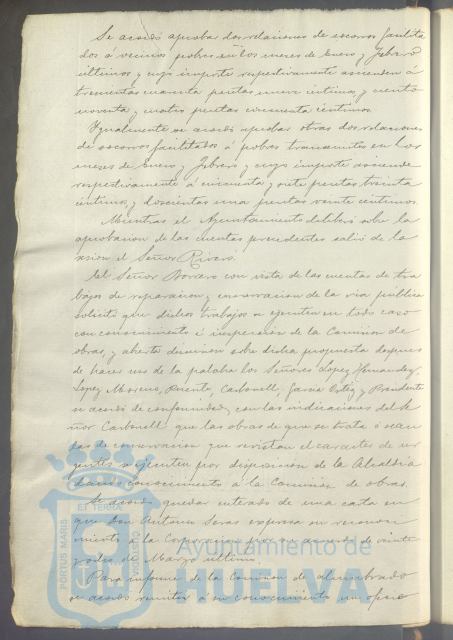 Se acordó aprobar dos relaciones de socorros facilita
dos á vecinos pobres en los meses de Enero y Febrero
últimos y cuyo importe respectivamente ascienden á
trescientas cuarenta pesetas nueve céntimos, y ciento
noventa y cuatro pesetas cincuenta céntimos.
Igualmente se acordó aprobar otras dos relaciones
de socorros facilitados á pobres transeuntes en los
meses de Enero y Febrero y cuyo importe asciende
respectivamente á cincuenta y siete pesetas treinta
céntimos, y doscientas una pesetas veinte céntimos.
Mientras el Ayuntamiento deliberó sobre la
aprobación de las cuentas precedentes salió de la
sesión el Señor Rivero.
El Señor Borrero con vista de las cuentas de tra
bajos de reparación y conservación de la vía pública
solicitó que dichos trabajos se ejecuten en todo caso
con conocimiento é inspección de la Comisión de
obras, y abierta discusión sobre dicha propuesta despues
de hacer uso de la palabra los Señores López Hernández,
López Moreno, Puente, Carbonell, García Ortiz y Presidente
se acordó de conformidad con las indicaciones del Se
ñor Carbonell que las obras de que se trata ó sean
las de conservación que revistan el carácter de ur
gentes se ejecuten por disposición de la Alcaldía
dando conocimiento á la Comisión de obras.
Se acordó quedar enterado de una carta en
que Don Antonio Seras expresa su reconoci
miento á la Corporación por su acuerdo de veinte
de Marzo último.
Para informe de la Comisión de alumbrado
se acordó remitir á su conocimiento un oficio
PORTUS MARIS
ET TERRÆ
CUSTODIA
Ayuntamiento de
HUELVA